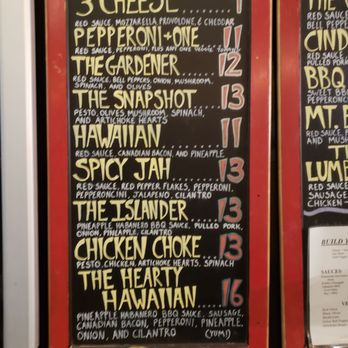 3 CHEESE
RED SAUCE, MOZZARELLA PROVOLONE, & CHEDDAR
PEPPERONI + ONE 11
RED SAUCE, PEPPERONI, PLUS ANY ONE VEGGIE
THE GARDENER 12
RED SAUCE, BELL PEPPERS, ONION, MUSHROOM,
SPINACH, AND OLIVES
THE SNAPSHOT 13
PESTO, OLIVES, MUSHROOM, SPINACH,
AND ARTICHOKE HEARTS
HAWAIIAN 11
RED SAUCE, CANADIAN BACON, AND PINEAPPLE
SPICY JAH 13
RED SAUCE, RED PEPPER FLAKES, PEPPERONI,
PEPPERONCINI, JALAPENO, CILANTRO
THE ISLANDER 13
PINEAPPLE HABANERO BBQ SAUCE, PULLED PORK,
ONION, PINEAPPLE, CILANTRO
CHICKEN CHOKE 13
PESTO, CHICKEN, ARTICHOKE HEARTS, SPINACH
THE HEARTY
HAWAIIAN 16
PINEAPPLE HABANERO BBQ SAUCE, SAUSAGE,
CANADIAN BACON, PEPPERONI, PINEAPPLE,
ONION, AND CILANTRO (YUM!)
THE
RED SAUCE
BELL PEPP
CIND
RED SAUCE
PULLED POR
BBQ
SWEET BB
PEPPERONC
MT. B
RED SAUCE,
AND MUSH
TH
LUMB
RED SAUCE
SAUSAGE
CHICKEN
BUILD
SAUCES